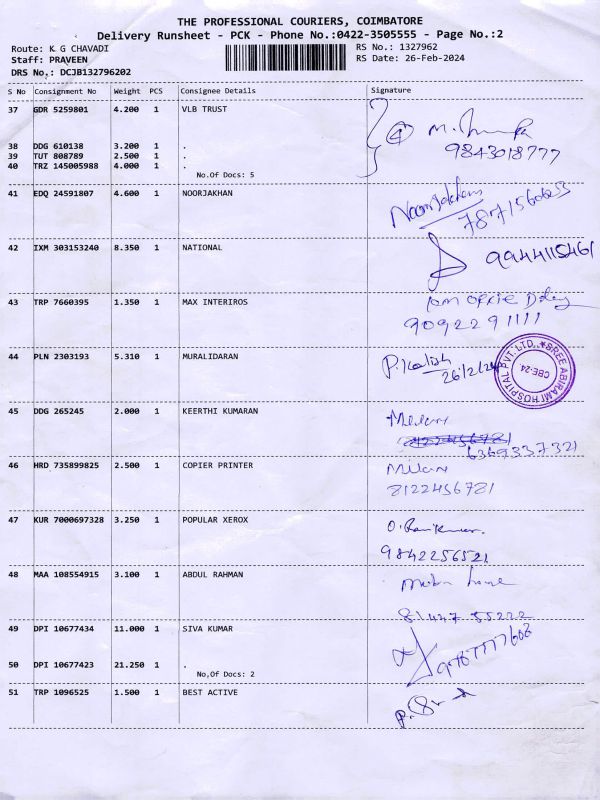 THE PROFESSIONAL COURIERS, COIMBATORE
Delivery Runsheet - PCK - Phone No.:0422-3505555 - Page No.:2
Route: K G CHAVADI
RS No.: 1327962
Staff: PRAVEEN
RS Date: 26-Feb-2024
DRS No.: DCJB132796202
S No Consignment No Weight PCS Consignee Details Signature
37 GDR 5259801 4.200 1 VLB TRUST
38 DDG 610138 3.200 1 .
9843018777
39 TUT 808789 2.500 1 .
40 TRZ 145005988 4.000 1 .
No.Of Docs: 5
41 EDQ 24591807 4.600 1 NOORJAKHAN
Noorjakhan
42 IXM 303153240 8.350 1 NATIONAL
9944115461
43 TRP 7660395 1.350 1 MAX INTERIROS
9092291111
44 PLN 2303193 5.310 1 MURALIDARAN
26/2/24
SREE ABIRAMI HOSPITAL PVT. LTD.,
CBE-24
45 DDG 265245 2.000 1 KEERTHI KUMARAN
8122456781
6369337321
46 HRD 735899825 2.500 1 COPIER PRINTER
8122456781
47 KUR 7000697328 3.250 1 POPULAR XEROX
9842256521
48 MAA 108554915 3.100 1 ABDUL RAHMAN
81447 55222
49 DPI 10677434 11.000 1 SIVA KUMAR
50 DPI 10677423 21.250 1 .
No,Of Docs: 2
51 TRP 1096525 1.500 1 BEST ACTIVE